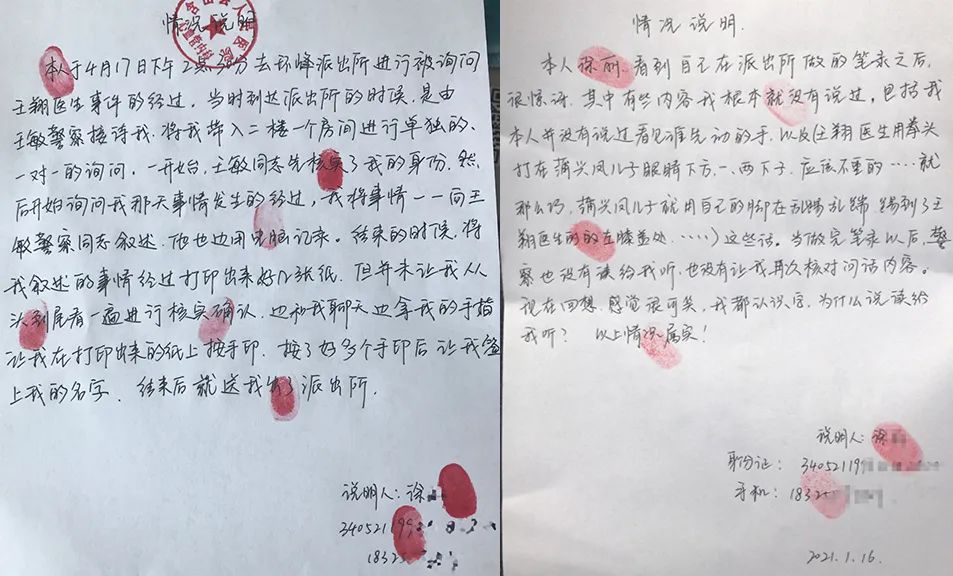 情况说明
本人于4月17日下午2点30分去环峰派出所进行被询问
王翔医生事件的经过。当时到达派出所的时候,是由
王敏警察接待我,将我带入二楼一个房间进行单独的、
一对一的询问。一开始,王敏同志先核实了我的身份.然
后开始询问我那天事情发生的经过,我将事情一一向王
敏警察同志叙述.他也边用电脑记录。结束的时候,将
我叙述的事情经过打印出来好几张纸.但并未让我从
头到尾看一遍进行核实确认.边和我聊天边拿我的手指
让我在打印出来的纸上按手印.按了好多个手印后让我签
上我的名字.结束后就送我出了派出所.
说明人:徐
34052119
1832
情况说明.
本人徐丽.看到自己在派出所做的笔录之后,
很惊讶.其中有些内容我根本就没有说过,包括我
本人并没有说过看见谁先动的手,以及(王翔医生用拳头
打在蒲兴凤儿子眼睛下方,一、两下子.应该不重的……就
那么巧,蒲兴凤儿子就用自己的脚在乱踢乱踹 踢到了王
翔医生的的左膝盖处……)这些话。当做完笔录以后,警
察也没有读给我听.也没有让我再次核对问话内容。
现在回想,感觉很可笑,我都认识字.为什么说读给
我听? 以上情况属实!
说明人:徐
身份证: 34052119
手机: 1832
2021.1.16.